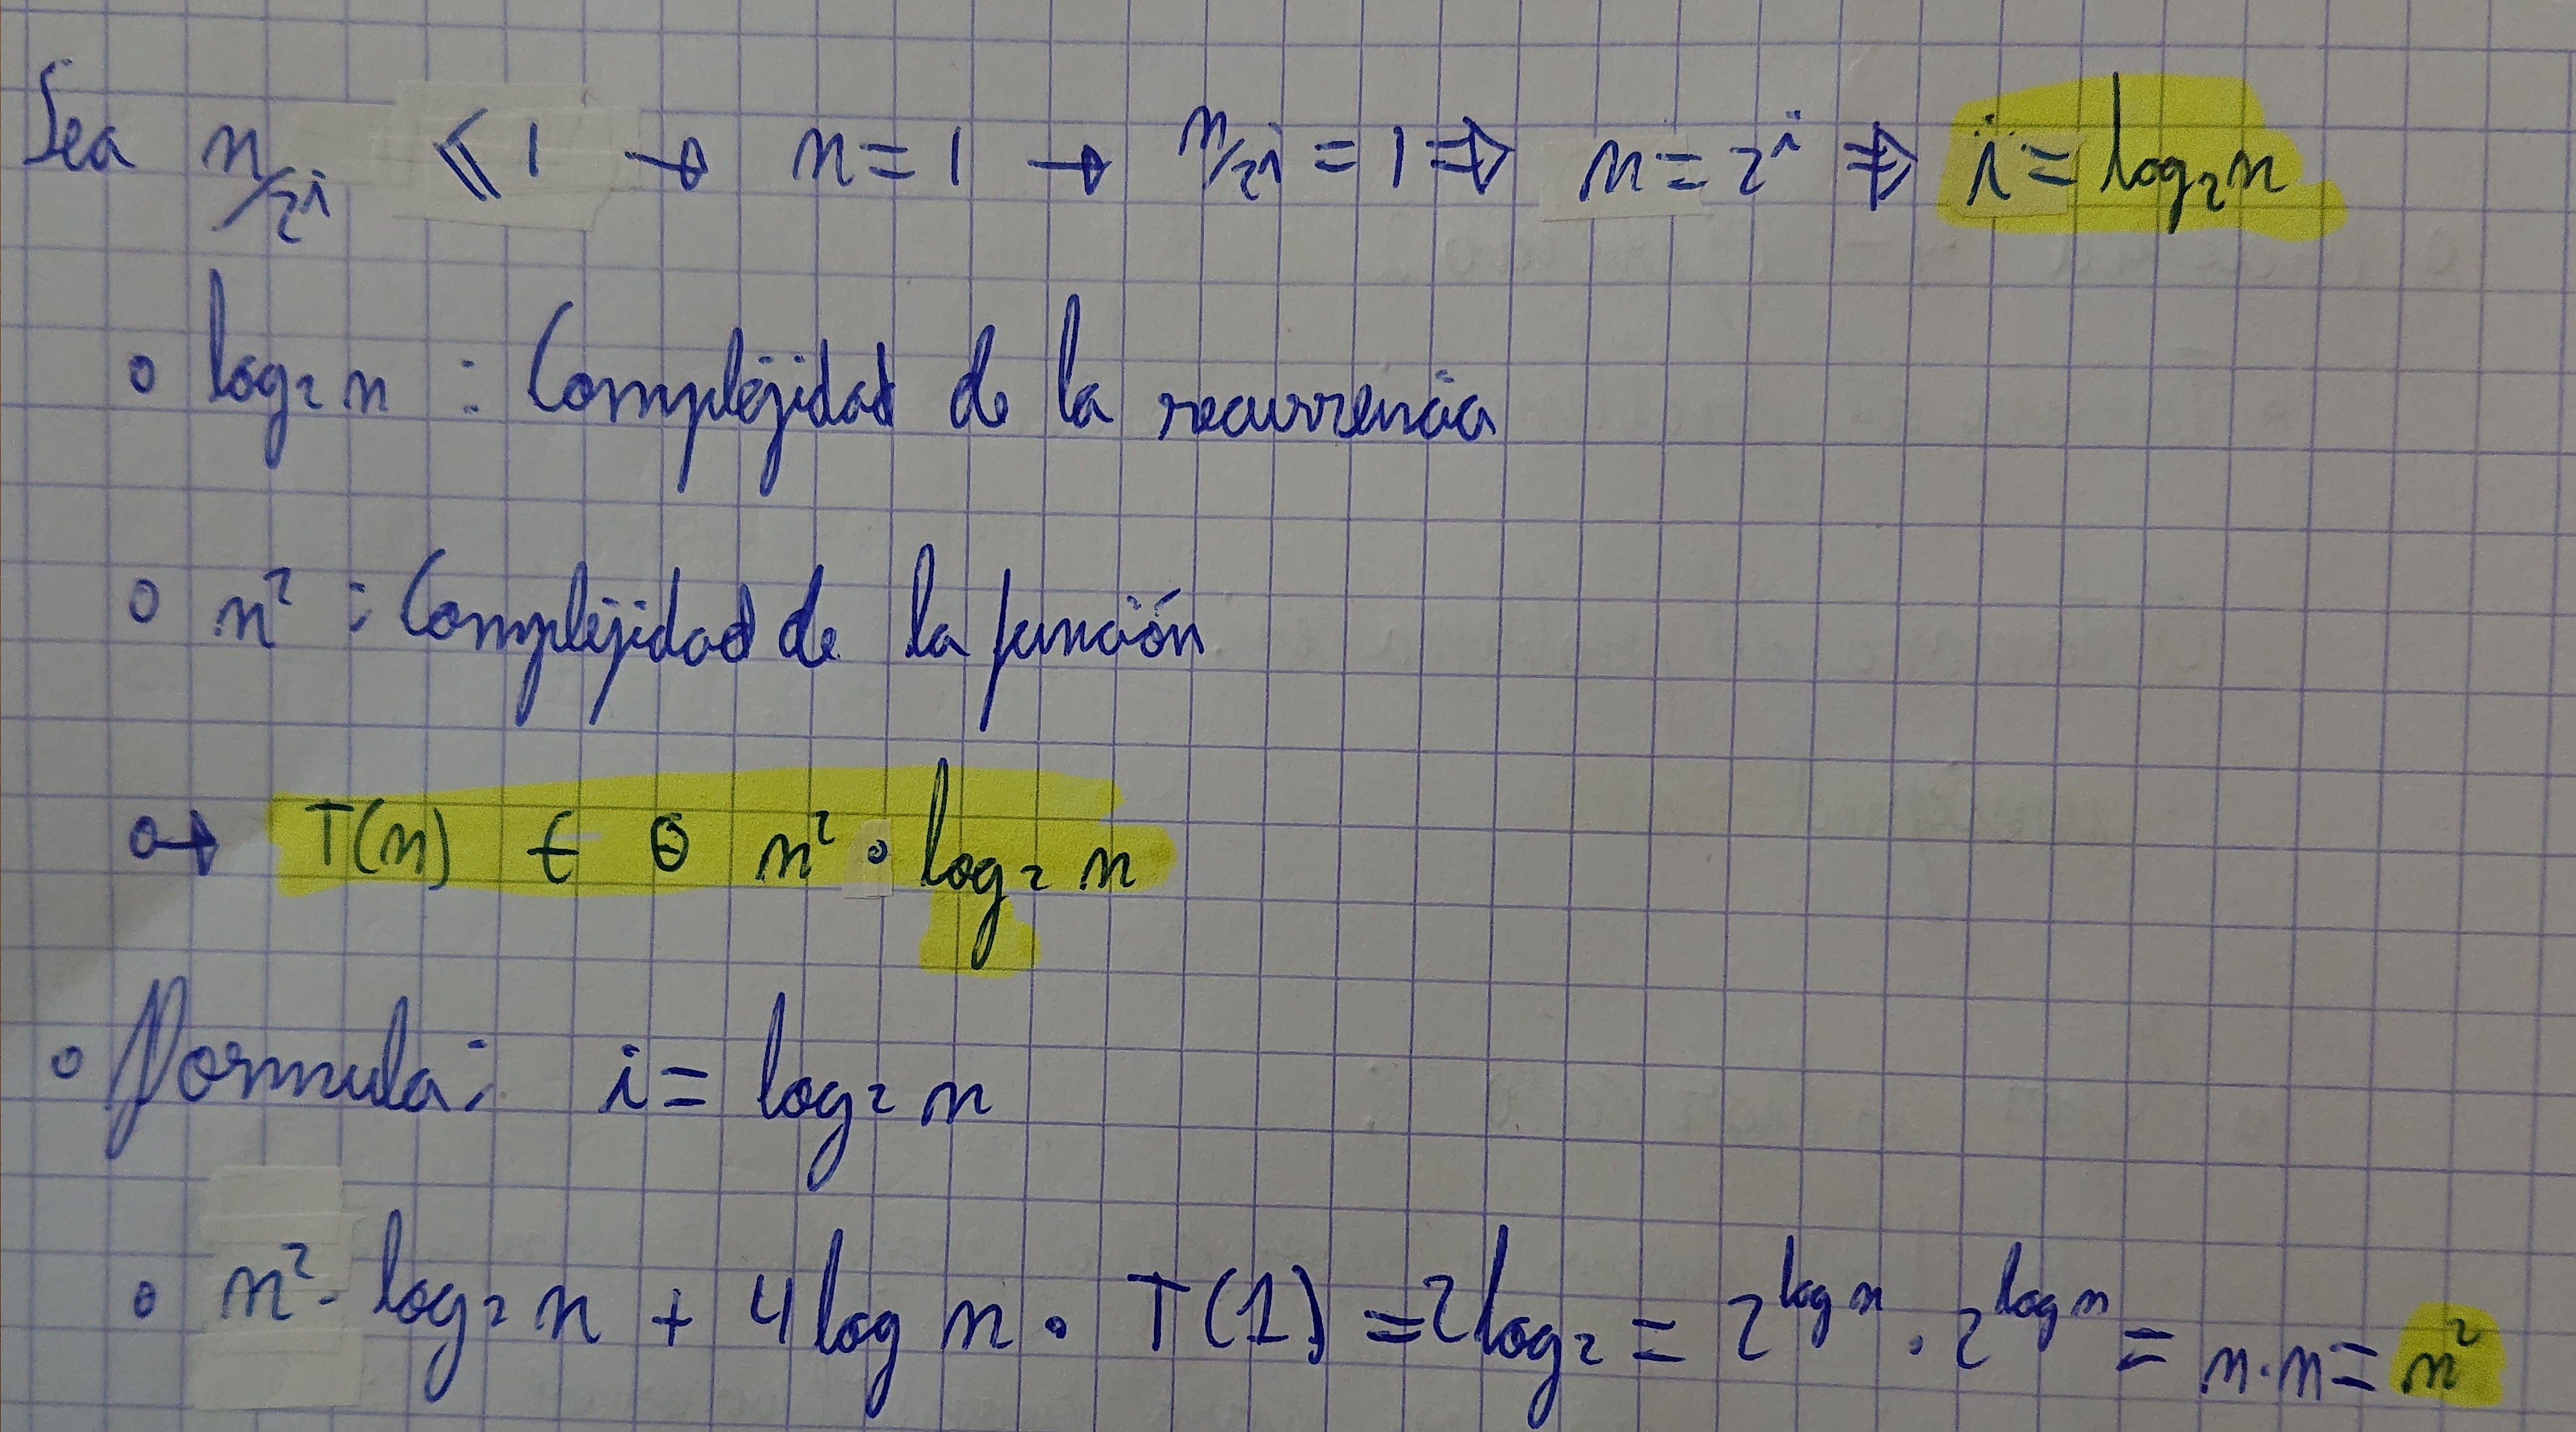 Sea n/2^i ≤ 1 → n = 1 → n/2^i = 1 ⇒ n = 2^i ⇒ i = log₂n
o log₂ n : Complejidad de la recurrencia
o n² : Complejidad de la función
o→ T(n) ∈ Θ n² · log₂ n
o Formula: i = log₂ n
o n² · log₂ n + 4 log n · T(1) = 2 log₂ = 2^log n · 2^log n = n·n = n²